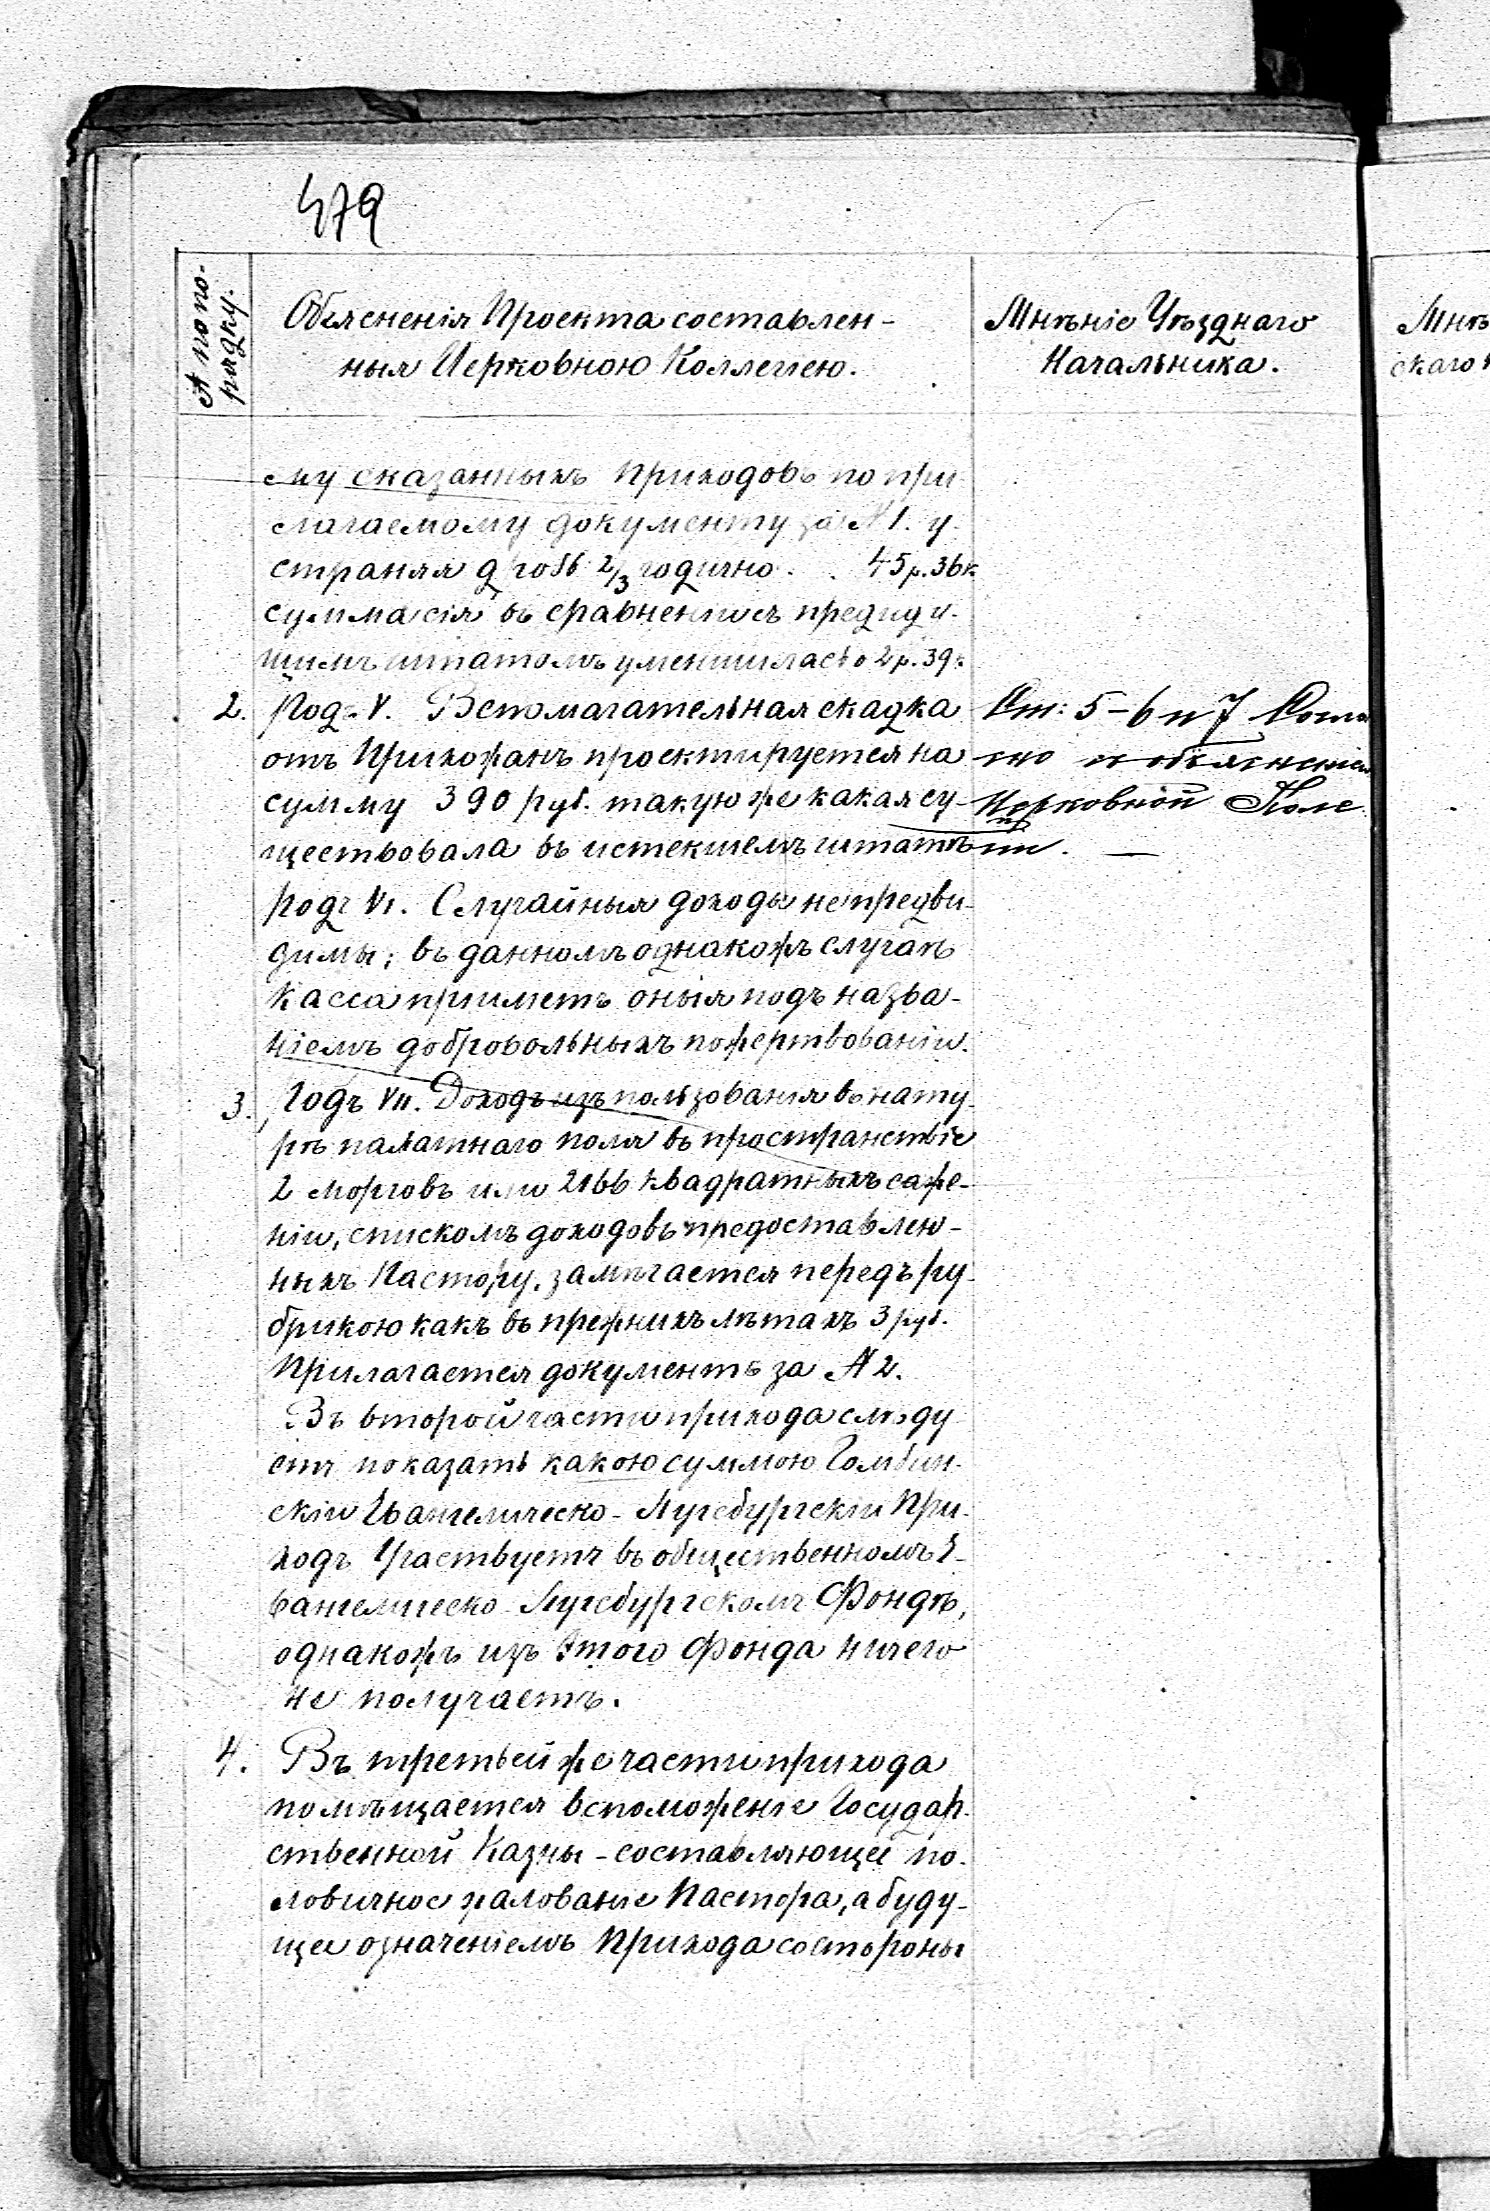 479
№ по по-
рядку.
Обясненія Проекта составлен-
ныя Церковною Коллегіею.
Мнѣніе Уѣзднаго
Начальника.
Мнѣ
скаго
му сказанныхъ приходовъ по при
лагаемому документу за № 1. у
страняя дробь 2/3 годично . . 45 р. 36 к
сумма сія въ сравненіи съ предиду-
щимъ штатомъ уменшилась о 2 р. 39 к.
2. Род. V. Вспомагательная складка
отъ Прихожанъ проектируется на
сумму 390 руб. такую же какая су-
ществовала въ истекшемъ штатѣ
Ст: 5-6 и 7 Согла
но и обясненія
Церковной Коле
гіи. —
родъ VI. Случайныя доходы непредви-
димы; въ данномъ однакожъ случаѣ
касса приметъ оныя подъ назва-
ніемъ добровольныхъ пожертвованіи.
3. Родъ VII. Доходъ изъ пользованія въ нату-
рѣ пахатнаго поля въ пространствіе
2 морговъ или 2166 квадратныхъ саже-
ніи, спискомъ доходовъ предоставлен-
ныхъ Пастору, замѣчается передъ ру-
брикою какъ въ прежнихъ лѣтахъ 3 руб.
Прилагается документъ за № 2.
Въ второй части прихода слѣду
етъ показать какою суммою Гомбин-
скіи Евангелическо-Аугсбургскіи При-
ходъ Участвуетъ въ общественномъ Е-
вангелическо Аугсбургскомъ Фондѣ,
однакожъ изъ этого Фонда ничего
не получаетъ.
4. Въ третьей же части прихода
помѣщается вспоможеніе Государ-
ственной Казны - составляющее по-
ловичное жалованіе Пастора, а буду-
щее означеніемъ Прихода со стороны